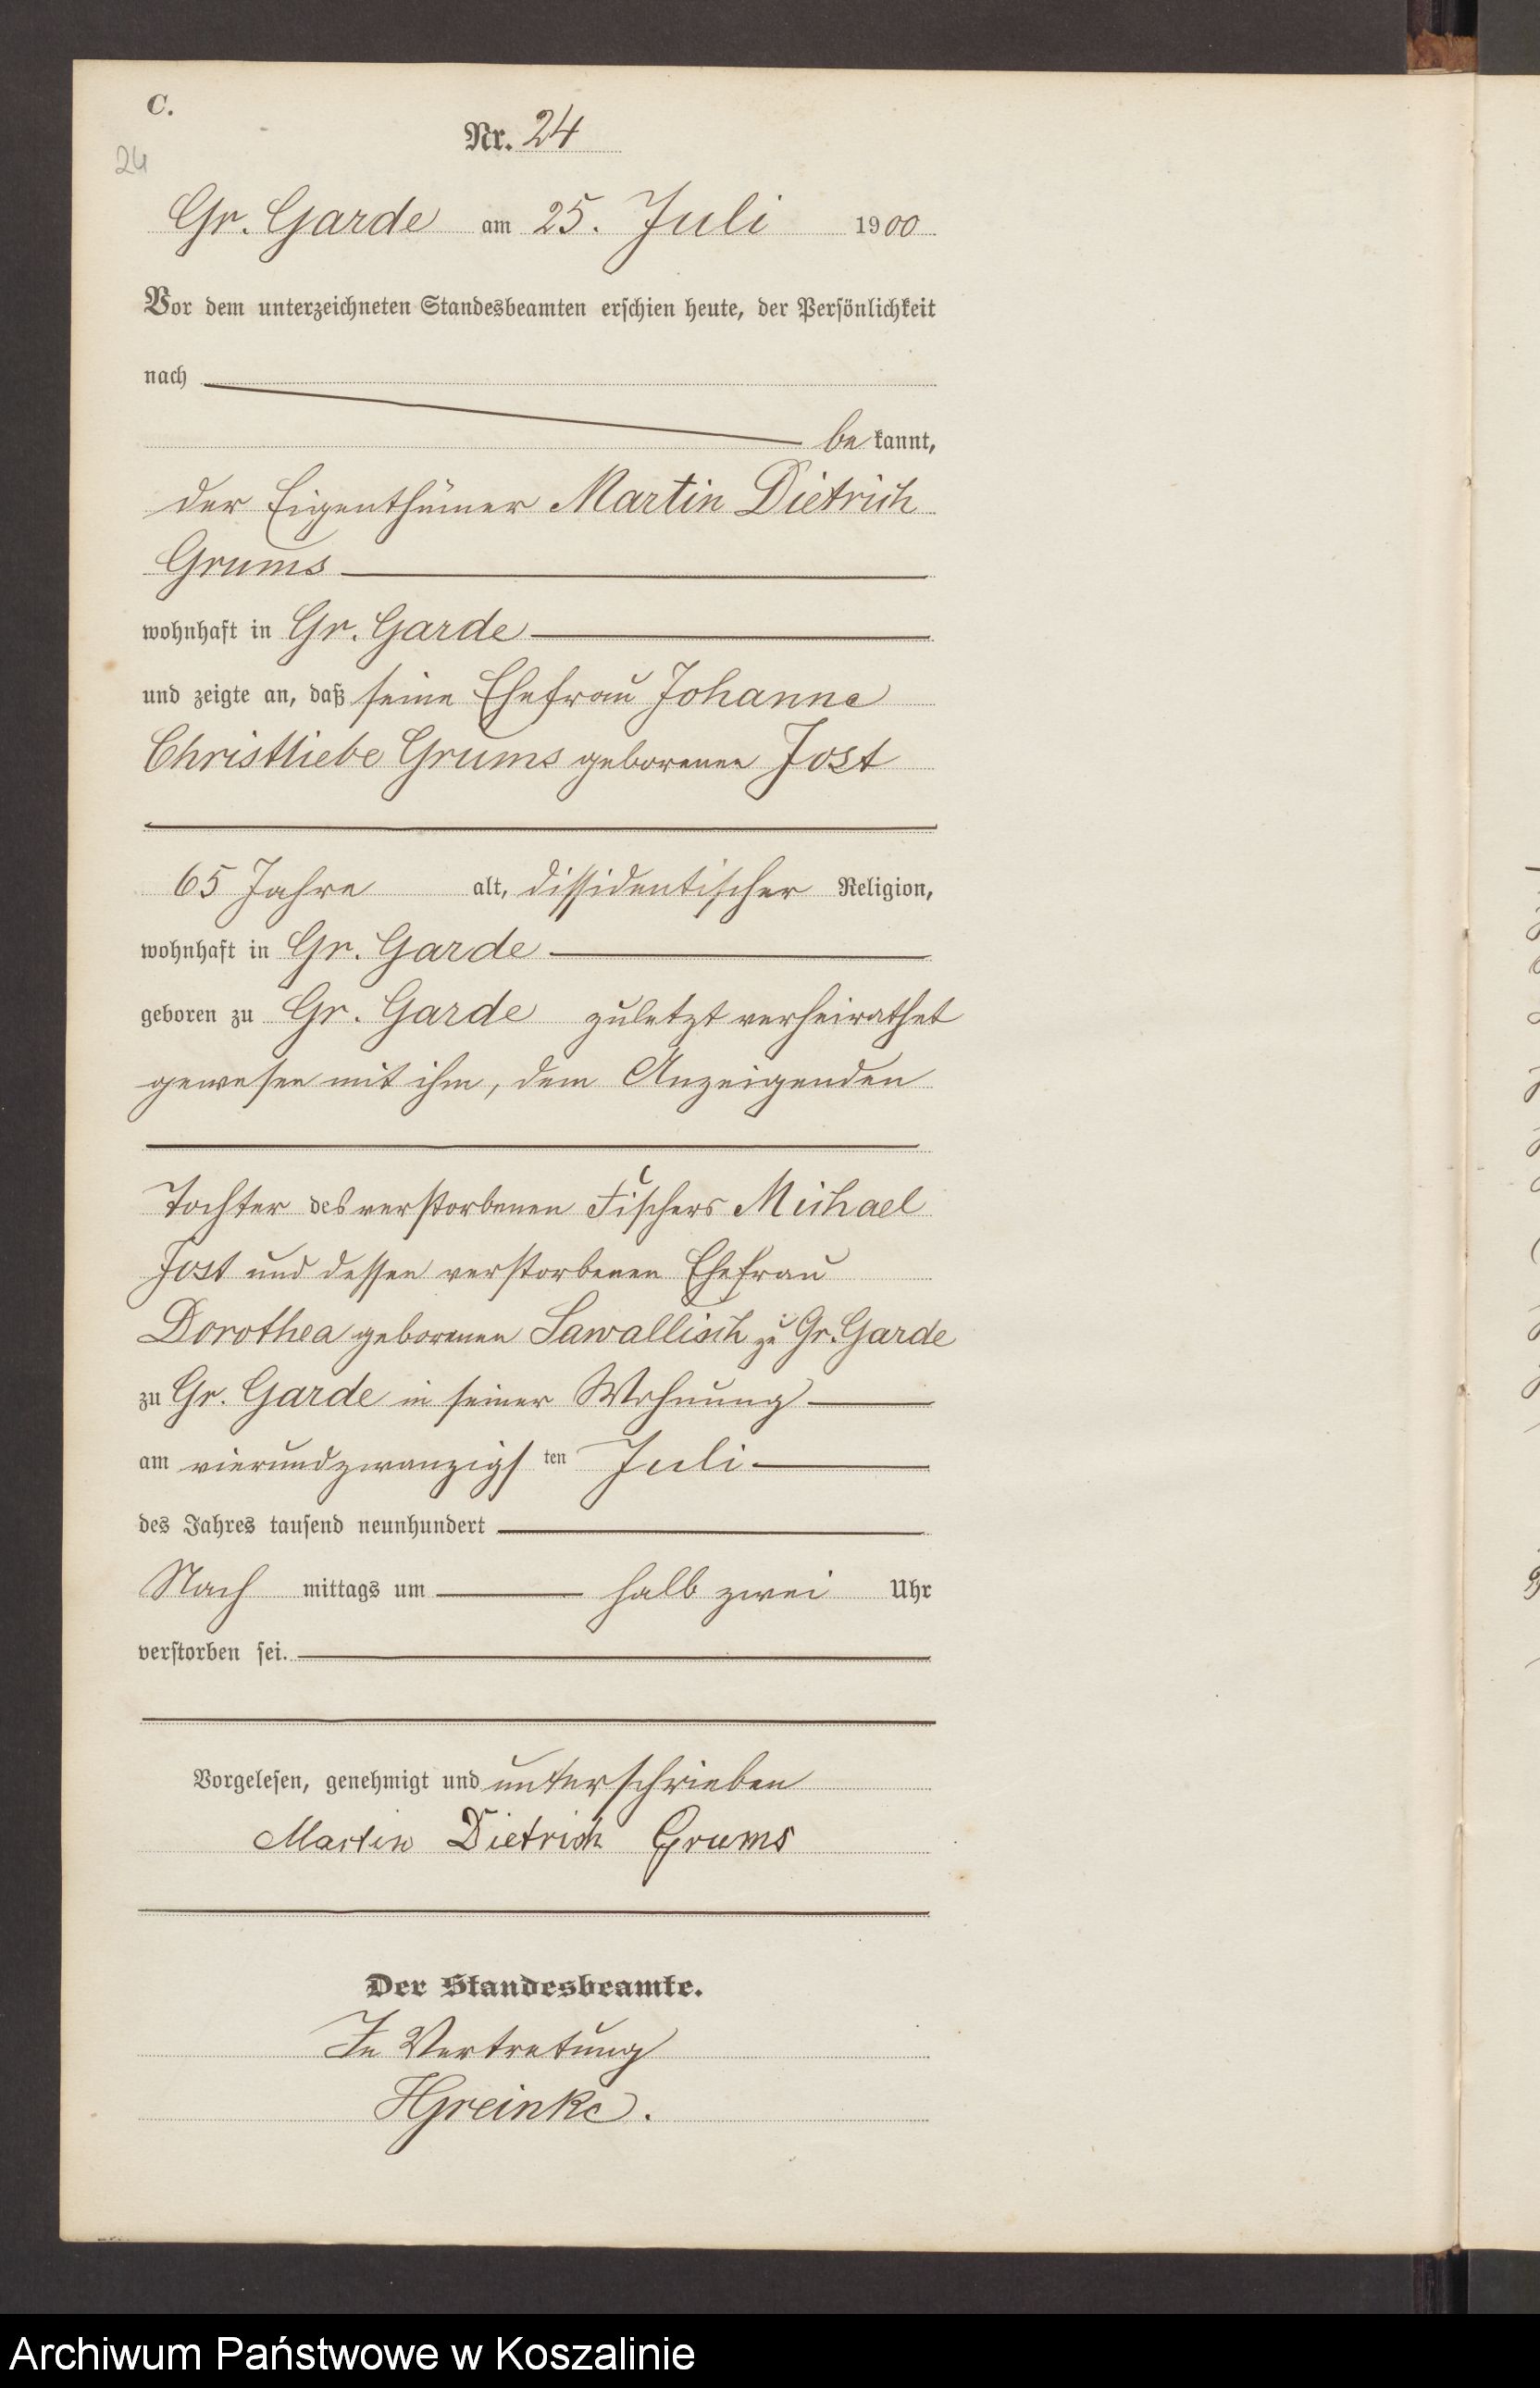 C.
Nr. 24
24
Gr. Garde am 25. Juli 1900
Vor dem unterzeichneten Standesbeamten erschien heute, der Persönlichkeit
nach
be kannt,
der Eigenthümer Martin Dietrich
Grums
wohnhaft in Gr. Garde
und zeigte an, daß seine Ehefrau Johanne
Christliebe Grums geborenen Jost
65 Jahre alt, dissidentischer Religion,
wohnhaft in Gr. Garde
geboren zu Gr. Garde zuletzt verheirathet
gewesen mit ihm, dem Anzeigenden
Tochter des verstorbenen Fischers Michael
Jost und dessen verstorbenen Ehefrau
Dorothea geborenen Sawallisch zu Gr. Garde
zu Gr. Garde in seiner Wohnung
am vierundzwanzigs ten Juli
des Jahres tausend neunhundert
Nach mittags um halb zwei Uhr
verstorben sei.
Vorgelesen, genehmigt und unterschrieben
Martin Dietrich Grums
Der Standesbeamte.
In Vertretung
HGreinke.
Archiwum Państwowe w Koszalinie